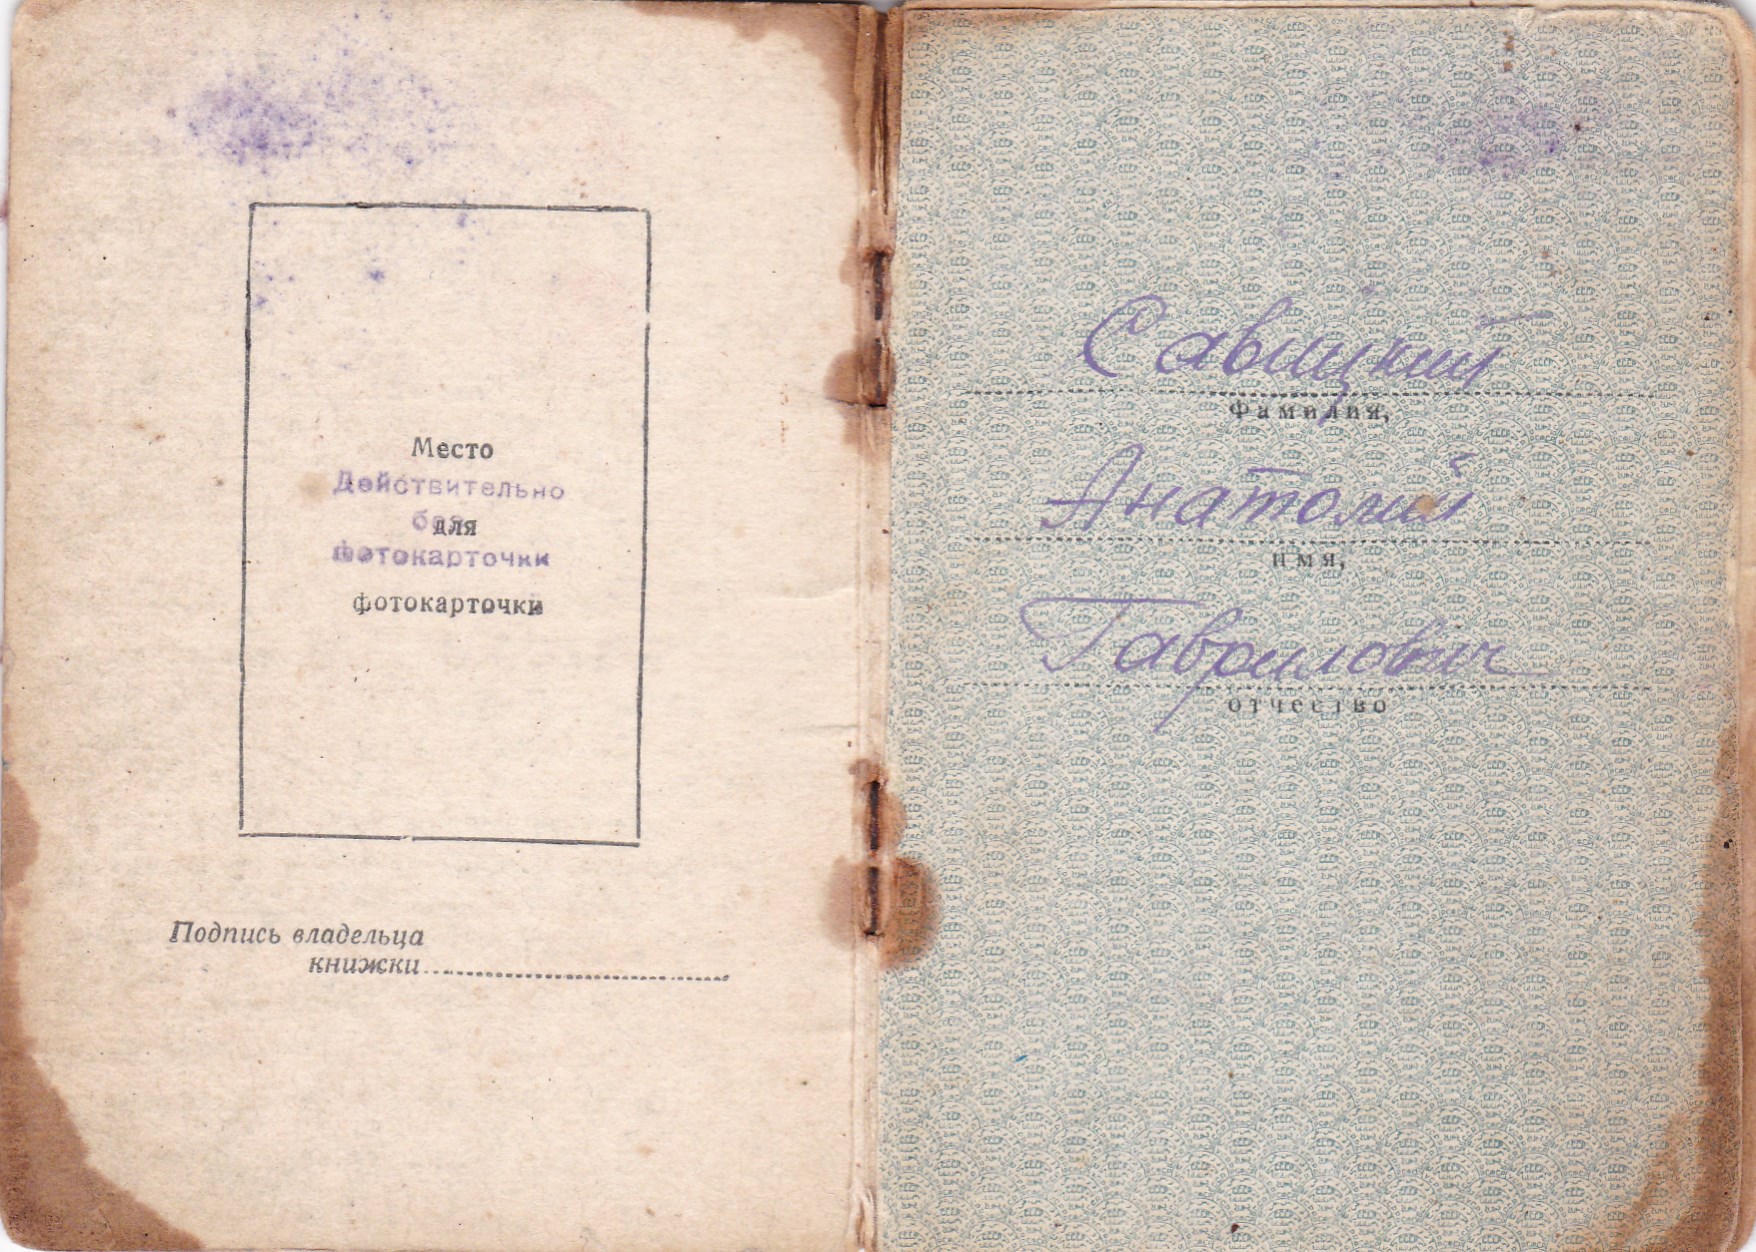 Место
Действительно
без
для
фотокарточки
фотокарточки
Подпись владельца
книжки
Савицкий
Фамилия,
Анатолий
имя,
Гаврилович
отчество